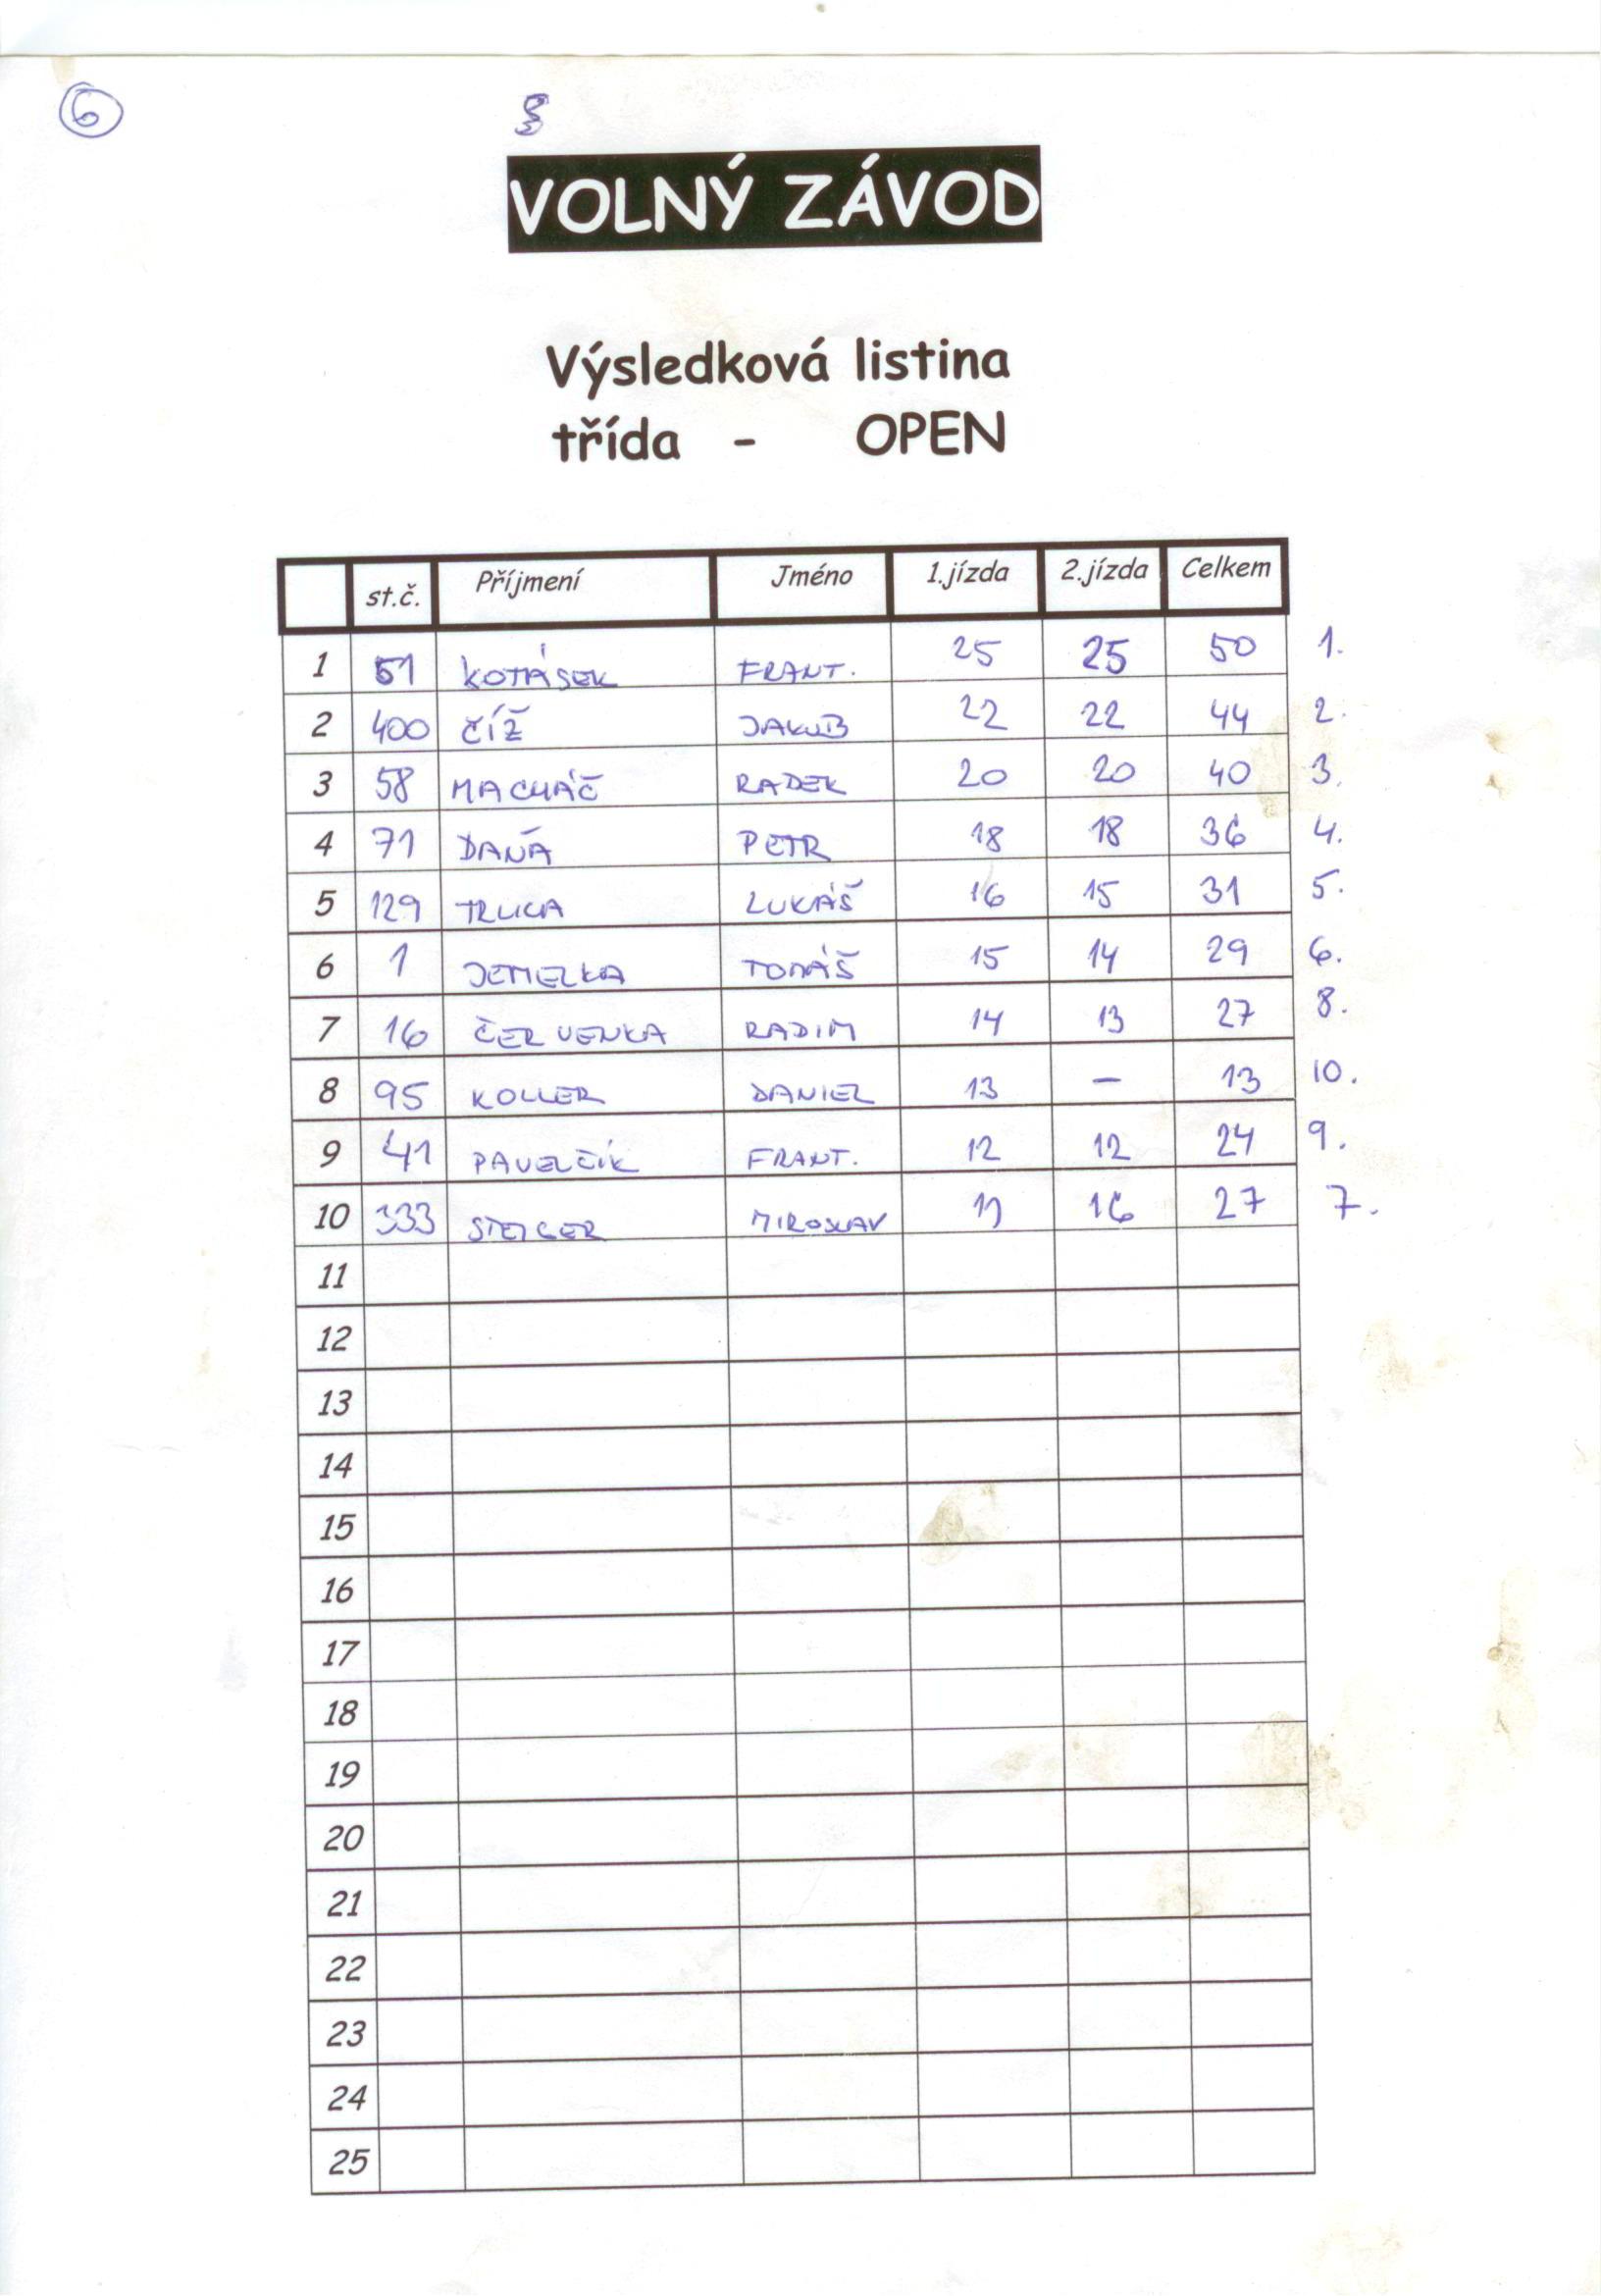 6
VOLNÝ ZÁVOD
Výsledková listina
třída - OPEN
st.č. Příjmení Jméno 1.jízda 2.jízda Celkem
1 51 KOTÁSEK FRANT. 25 25 50 1.
2 400 ČÍŽ JAKUB 22 22 44 2.
3 58 MACHÁČ RADEK 20 20 40 3.
4 71 DAŇA PETR 18 18 36 4.
5 129 TRLICA LUKÁŠ 16 15 31 5.
6 1 JEMELKA TOMÁŠ 15 14 29 6.
7 16 ČERVENKA RADIM 14 13 27 8.
8 95 KOLLER DANIEL 13 – 13 10.
9 41 PAVELČÍK FRANT. 12 12 24 9.
10 333 STEIGER MIROSLAV 11 16 27 7.
11
12
13
14
15
16
17
18
19
20
21
22
23
24
25